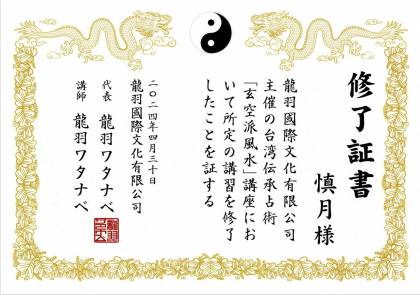 修了証書
慎月様
龍羽國際文化有限公司
主催の台湾伝承占術
「玄空派風水」講座にお
いて所定の講習を修了
したことを証する
二〇二四年四月三十日
龍羽國際文化有限公司
代表 龍羽ワタナベ
講師 龍羽ワタナベ